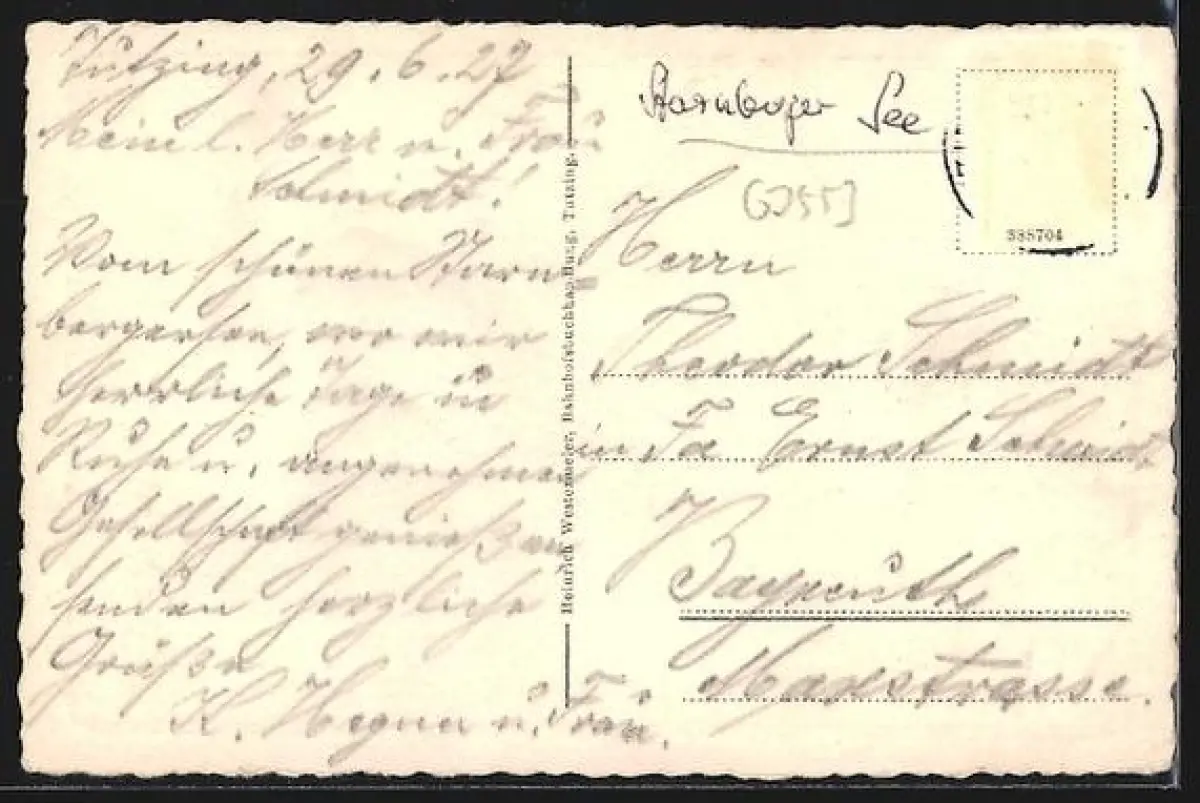 Tutzing, 29. 6. 27
Mein l. Herr u. Frau
Schmidt!
Vom schönen Starn-
bergersee, wo wir
herrliche Tage in
Ruhe u. angenehmer
Gesellschaft genießen
senden herzliche
Grüße
H. Hegner u. Frau.
Heinrich Westermeier, Bahnhofsbuchhandlung, Tutzing.
Starnberger See
388704
Herrn
Theodor Schmidt
in Fa Ernst Schmidt
Bayreuth
Maxstrasse.